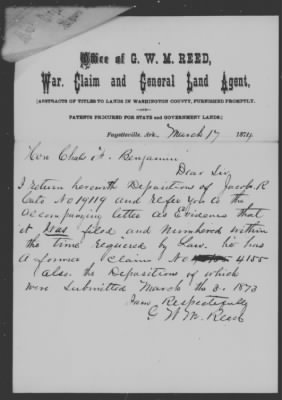 Office of G. W. M. REED,
War, Claim and General Land Agent,
(ABSTRACTS OF TITLES TO LANDS IN WASHINGTON COUNTY, FURNISHED PROMPTLY.
PATENTS PROCURED FOR STATE and GOVERNMENT LANDS.)
Fayetteville, Ark., March 17 1874.
Hon Chas F. Benjamin
Dear Sir
I return herewith Depositions of Jacob. R
Cato No 19119 and refer you to the
accompanying letter as Evidence that
it was filed and Numbered within
the time required by Law. he has
a former Claim No 4155
also. the Depositions of which
were Submitted March the 3. 1873
Respectfully
G W M. Reed